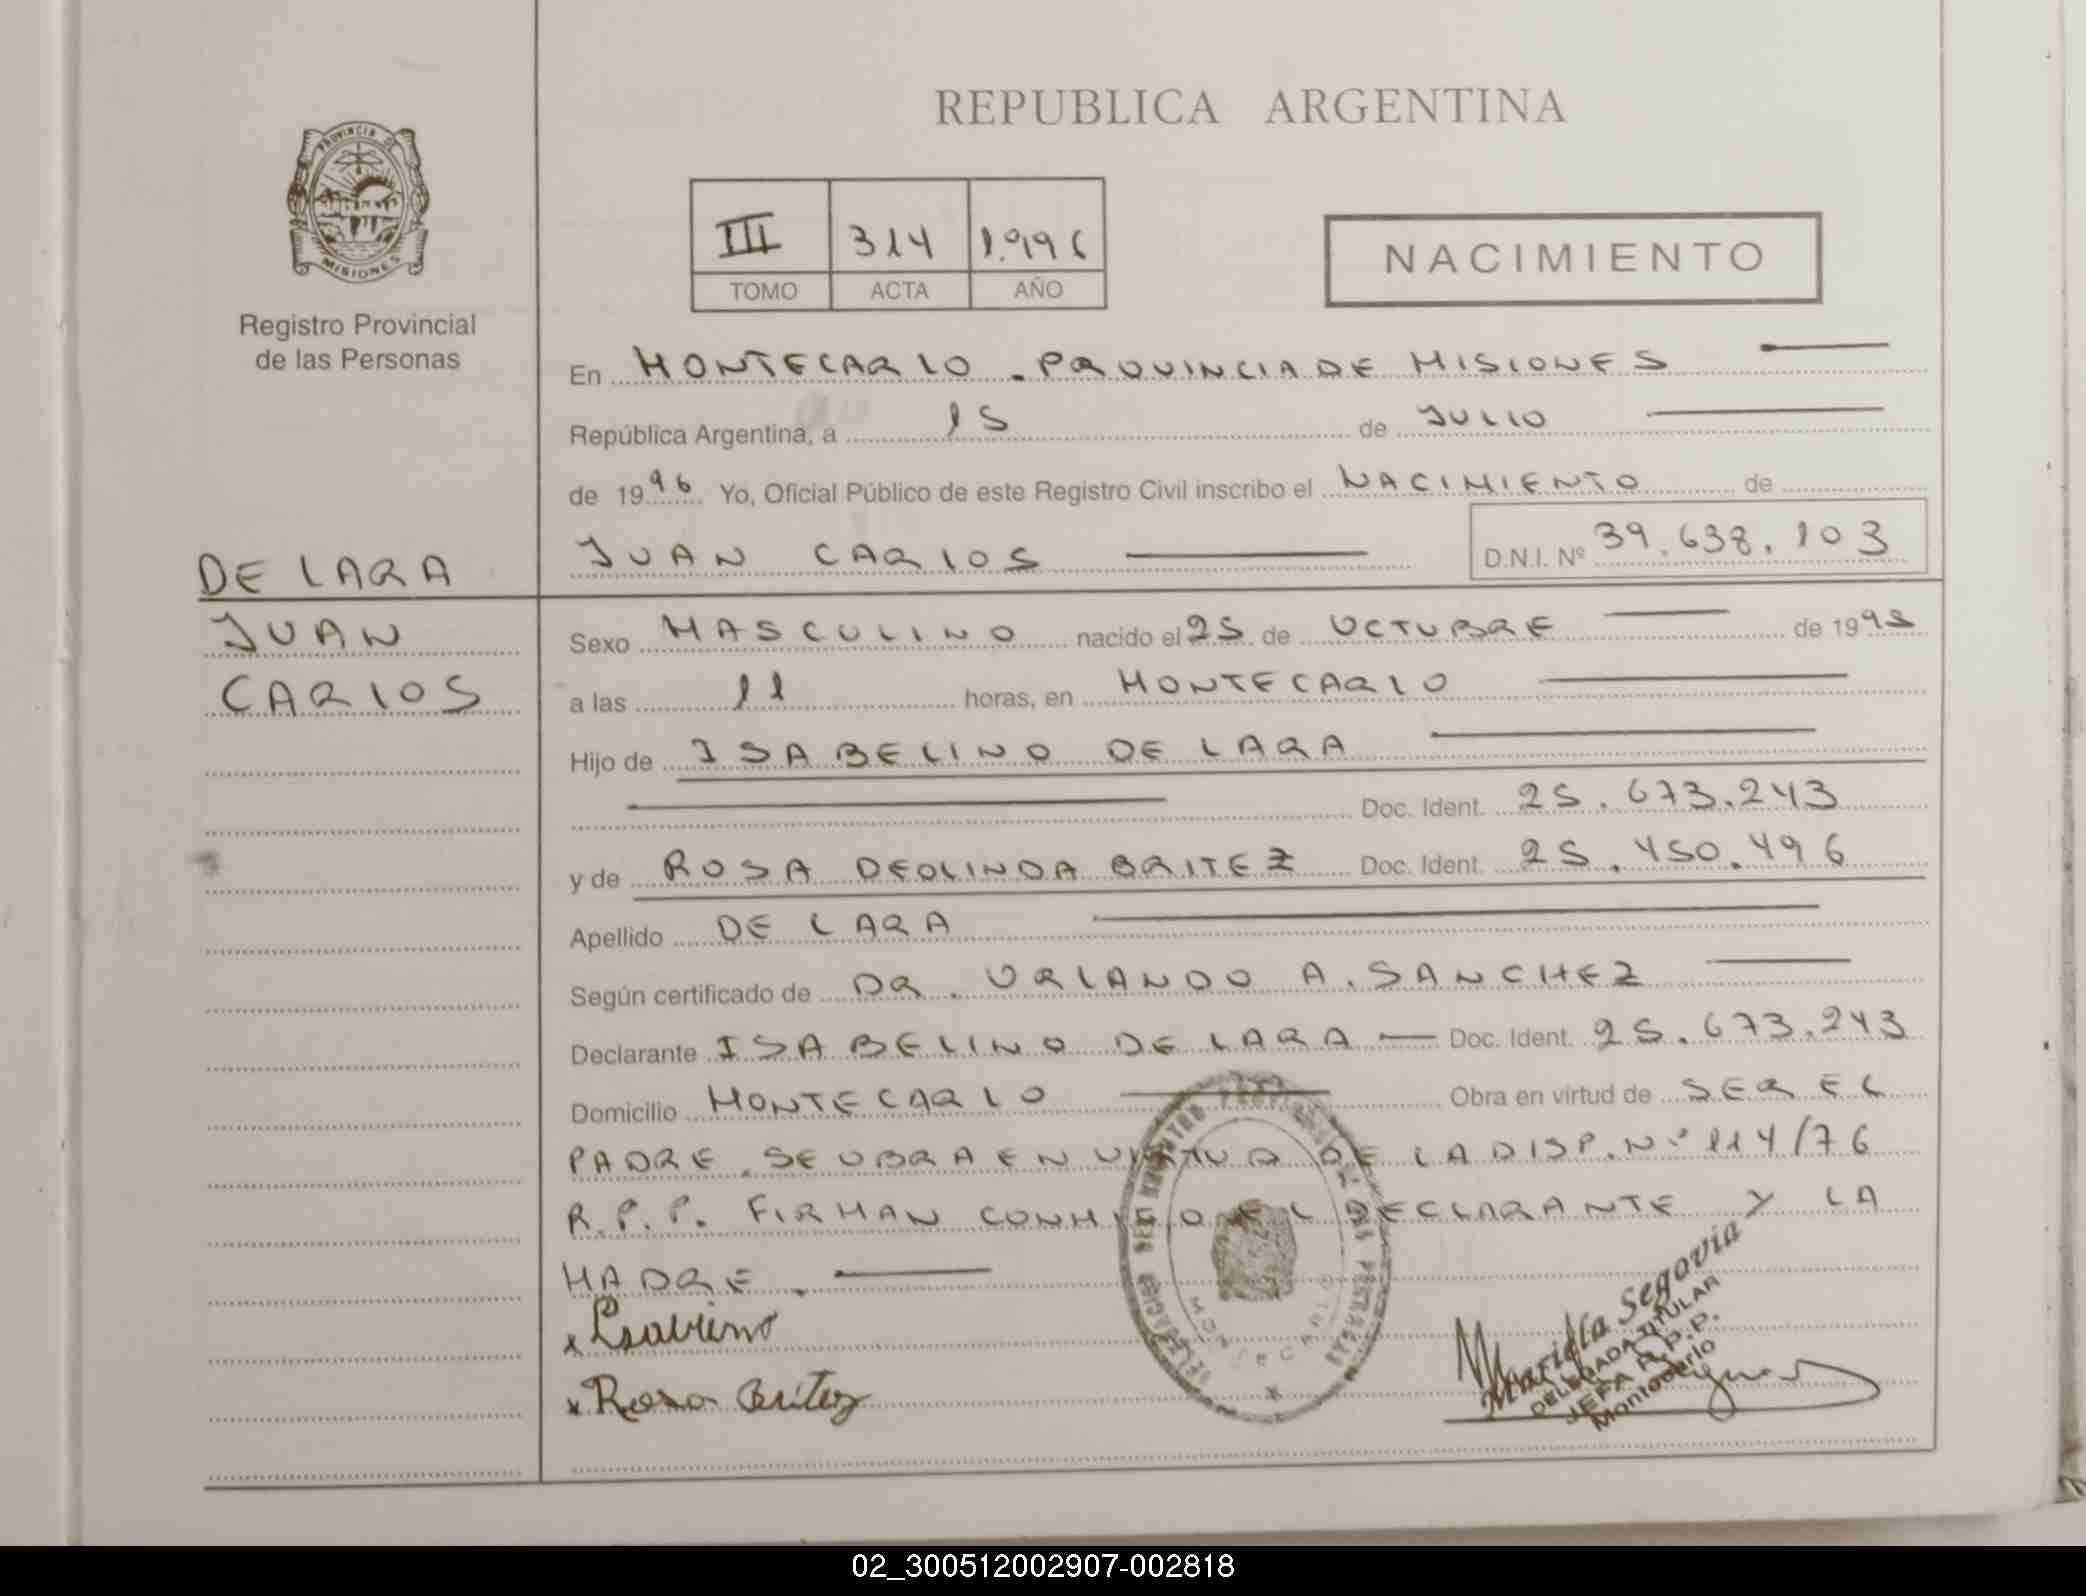 REPUBLICA ARGENTINA
PROVINCIA DE
MISIONES
Registro Provincial
de las Personas
III 314 1.996
TOMO ACTA AÑO
NACIMIENTO
En MONTECARLO . PROVINCIA DE MISIONES
República Argentina, a 15 de JULIO
de 1996 Yo, Oficial Público de este Registro Civil inscribo el NACIMIENTO de
JUAN CARLOS D.N.I. Nº 39.638.103
DE LARA
JUAN
CARLOS
Sexo MASCULINO nacido el 25 de OCTUBRE de 1995
a las 11 horas, en MONTECARLO
Hijo de ISABELINO DE LARA
Doc. Ident. 25.673.243
y de ROSA DEOLINDA BRITEZ Doc. Ident. 25.450.496
Apellido DE LARA
Según certificado de DR. ORLANDO A. SANCHEZ
Declarante ISABELINO DE LARA Doc. Ident. 25.673.243
Domicilio MONTECARLO Obra en virtud de SER EL
PADRE . SE OBRA EN VIRTUD DE LA DISP. Nº 114/76
R.P.P. FIRMAN CONMIGO EL DECLARANTE Y LA
MADRE .
x Isavino
x Rosa Britez
MONTECARLO
Mariella Segovia
DELEGADA TITULAR
JEFA R.P.P.
Montecarlo
02_300512002907-002818